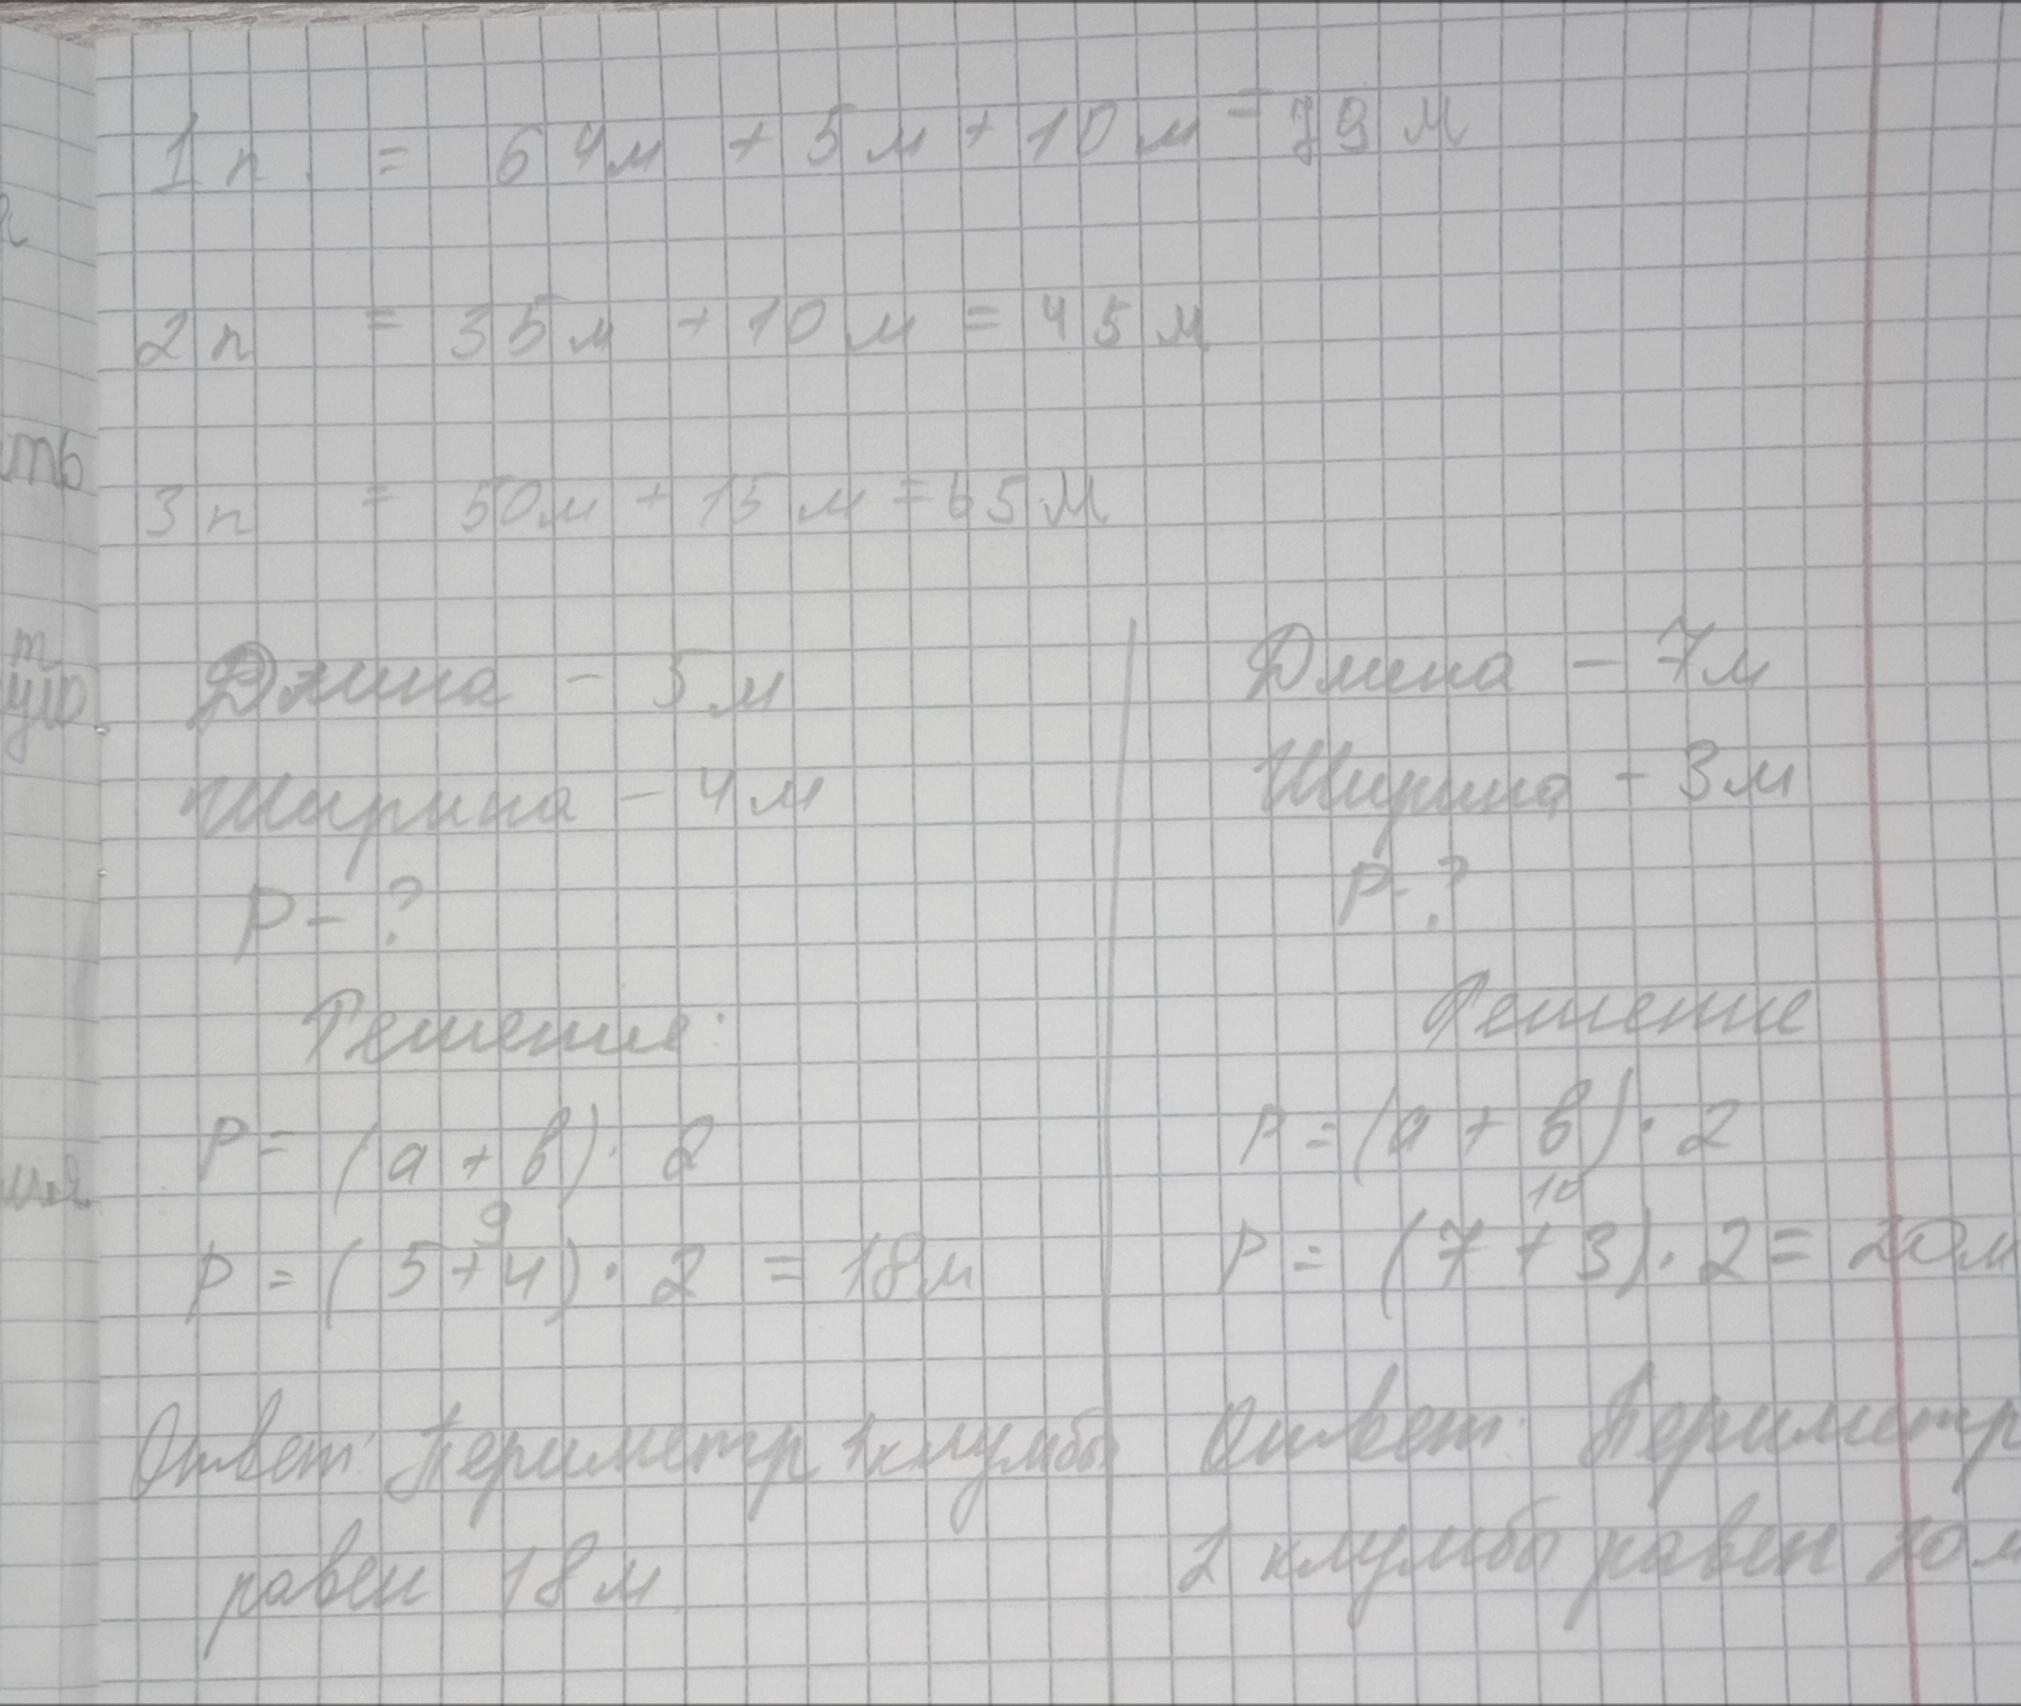 1 п. = 64м + 5м + 10м = 79м
2 п = 35м + 10м = 45м
3 п = 50м + 15м = 65м
Длина - 5м
Ширина - 4м
Р - ?
Решение:
Р = (а + в) · 2
9
Р = (5+4) · 2 = 18м
Ответ: Периметр 1 клумбы
равен 18м
Длина - 7м
Ширина - 3м
Р - ?
Решение
Р = (а + в) · 2
10
Р = (7 + 3) · 2 = 20м
Ответ: Периметр
2 клумбы равен 20м